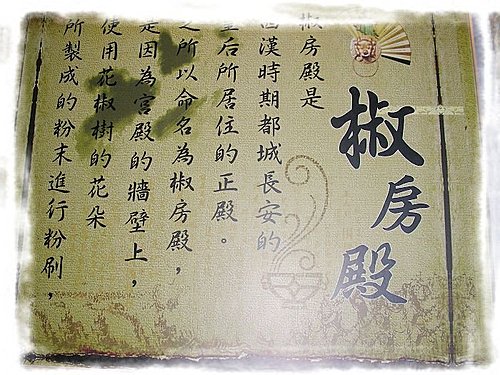 椒房殿
椒房殿是
西漢時期都城長安的
皇后所居住的正殿。
之所以命名為椒房殿，
是因為宮殿的牆壁上，
使用花椒樹的花朵
所製成的粉末進行粉刷，